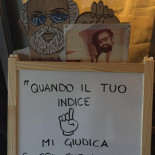 "QUANDO IL TUO
INDICE
MI GIUDICA